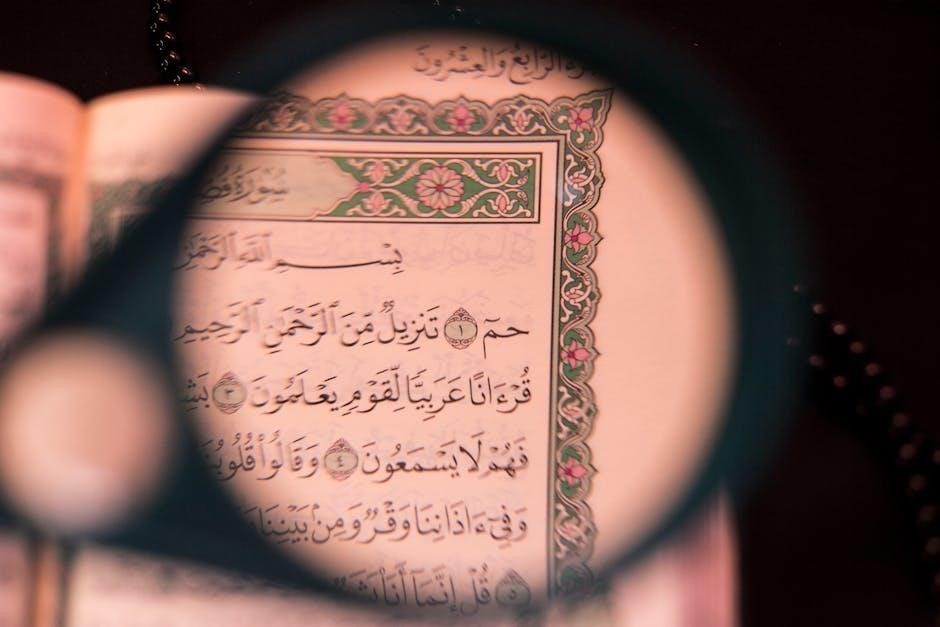 الرَّابِعُ وَالْعِشْرُونَ
سُورَةُ فُصِّ
بِسْمِ ٱللَّهِ ٱلرَّحْمَٰنِ
حمٓ ١ تَنزِيلٌ مِّنَ ٱلرَّحْمَٰنِ ٱلرَّحِيمِ
قُرْءَانًا عَرَبِيًّا لِّقَوْمٍ يَعْلَمُونَ ٣
فَهُمْ لَا يَسْمَعُونَ ٤ وَقَالُوا۟ قُلُوبُنَا
وَفِىٓ ءَاذَانِنَا وَقْرٌ وَمِنۢ بَيْنِنَا
٥ قُلْ إِنَّمَآ أَنَا۠